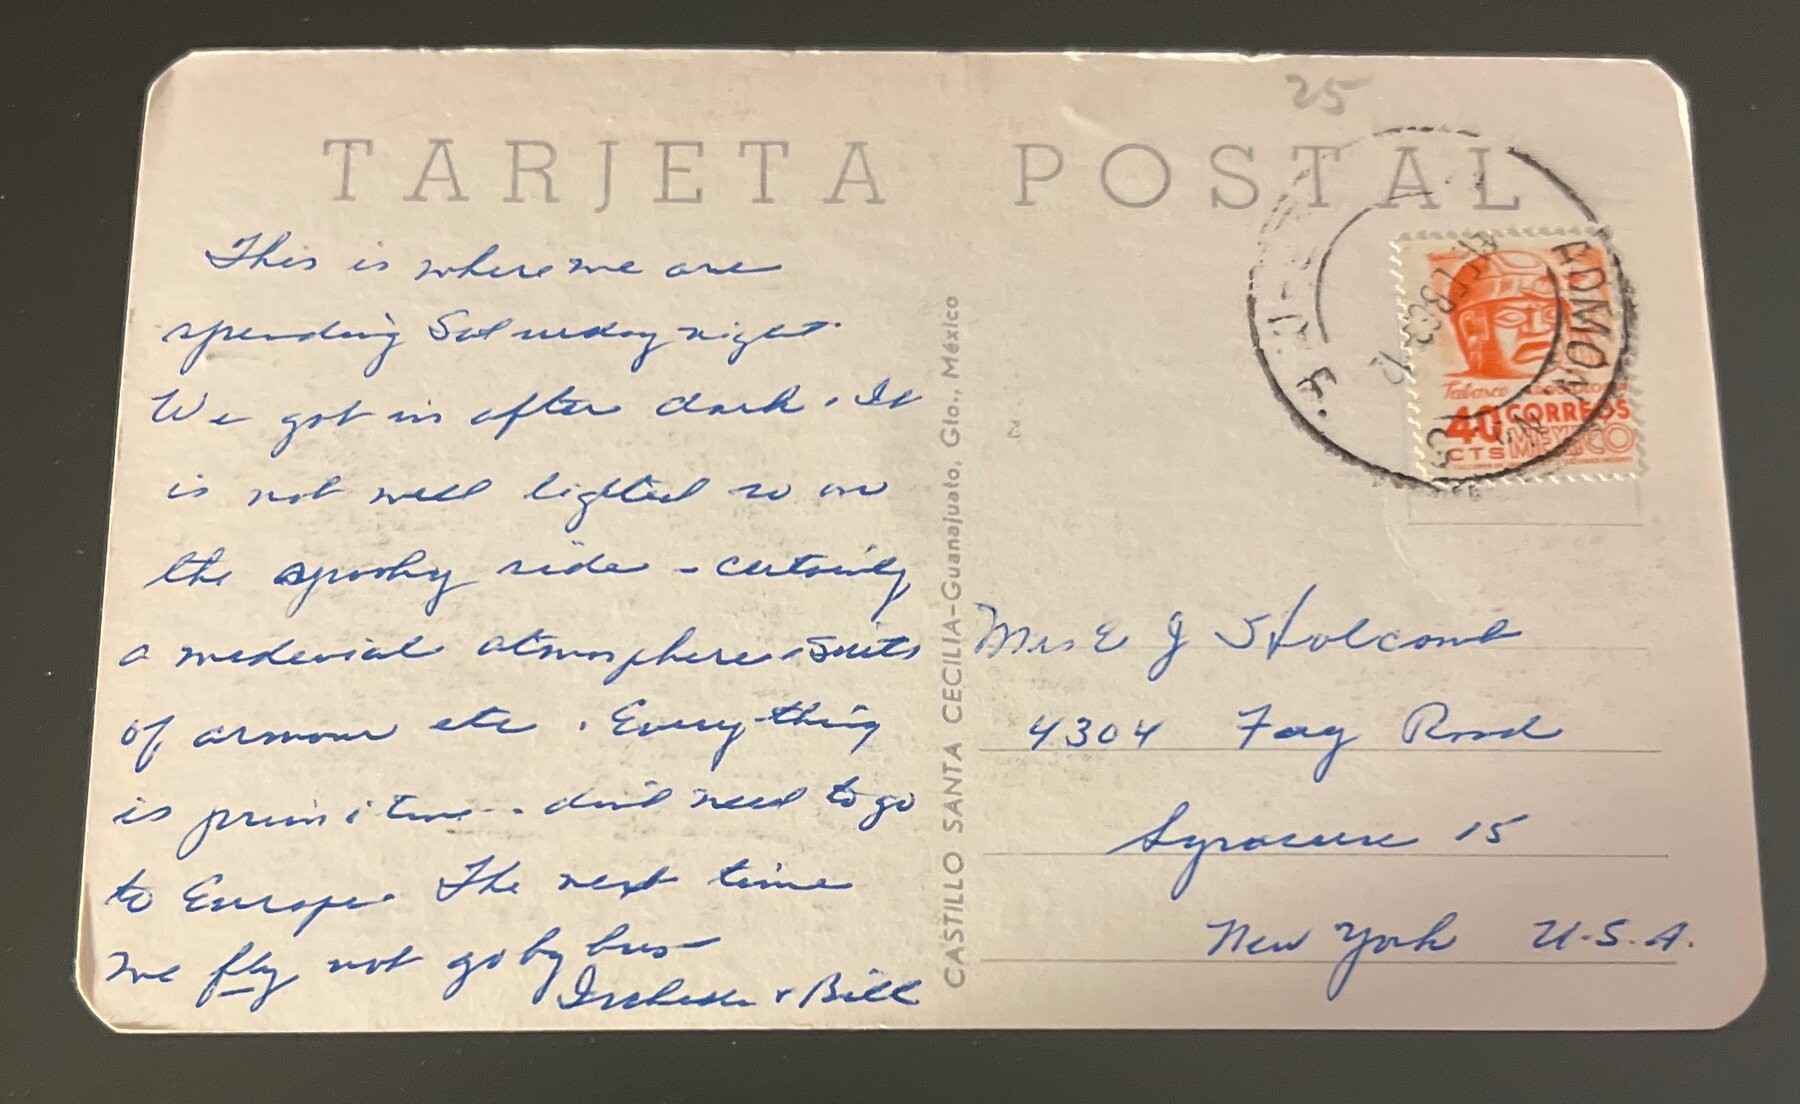 25
TARJETA POSTAL
This is where we are
spending Saturday night.
We got in after dark. It
is not well lighted so on
the spooky side - certainly
a medevial atmosphere - suits
of armour etc. Everything
is primitive - don't need to go
to Europe. The next time
we fly not go by bus
& Bill
CASTILLO SANTA CECILIA-Guanajuato, Gto., México
Tabasco
40 CORREOS
CTS MEXICO
Mrs E J Holcomb
4304 Fay Road
Syracuse 15
New York U.S.A.